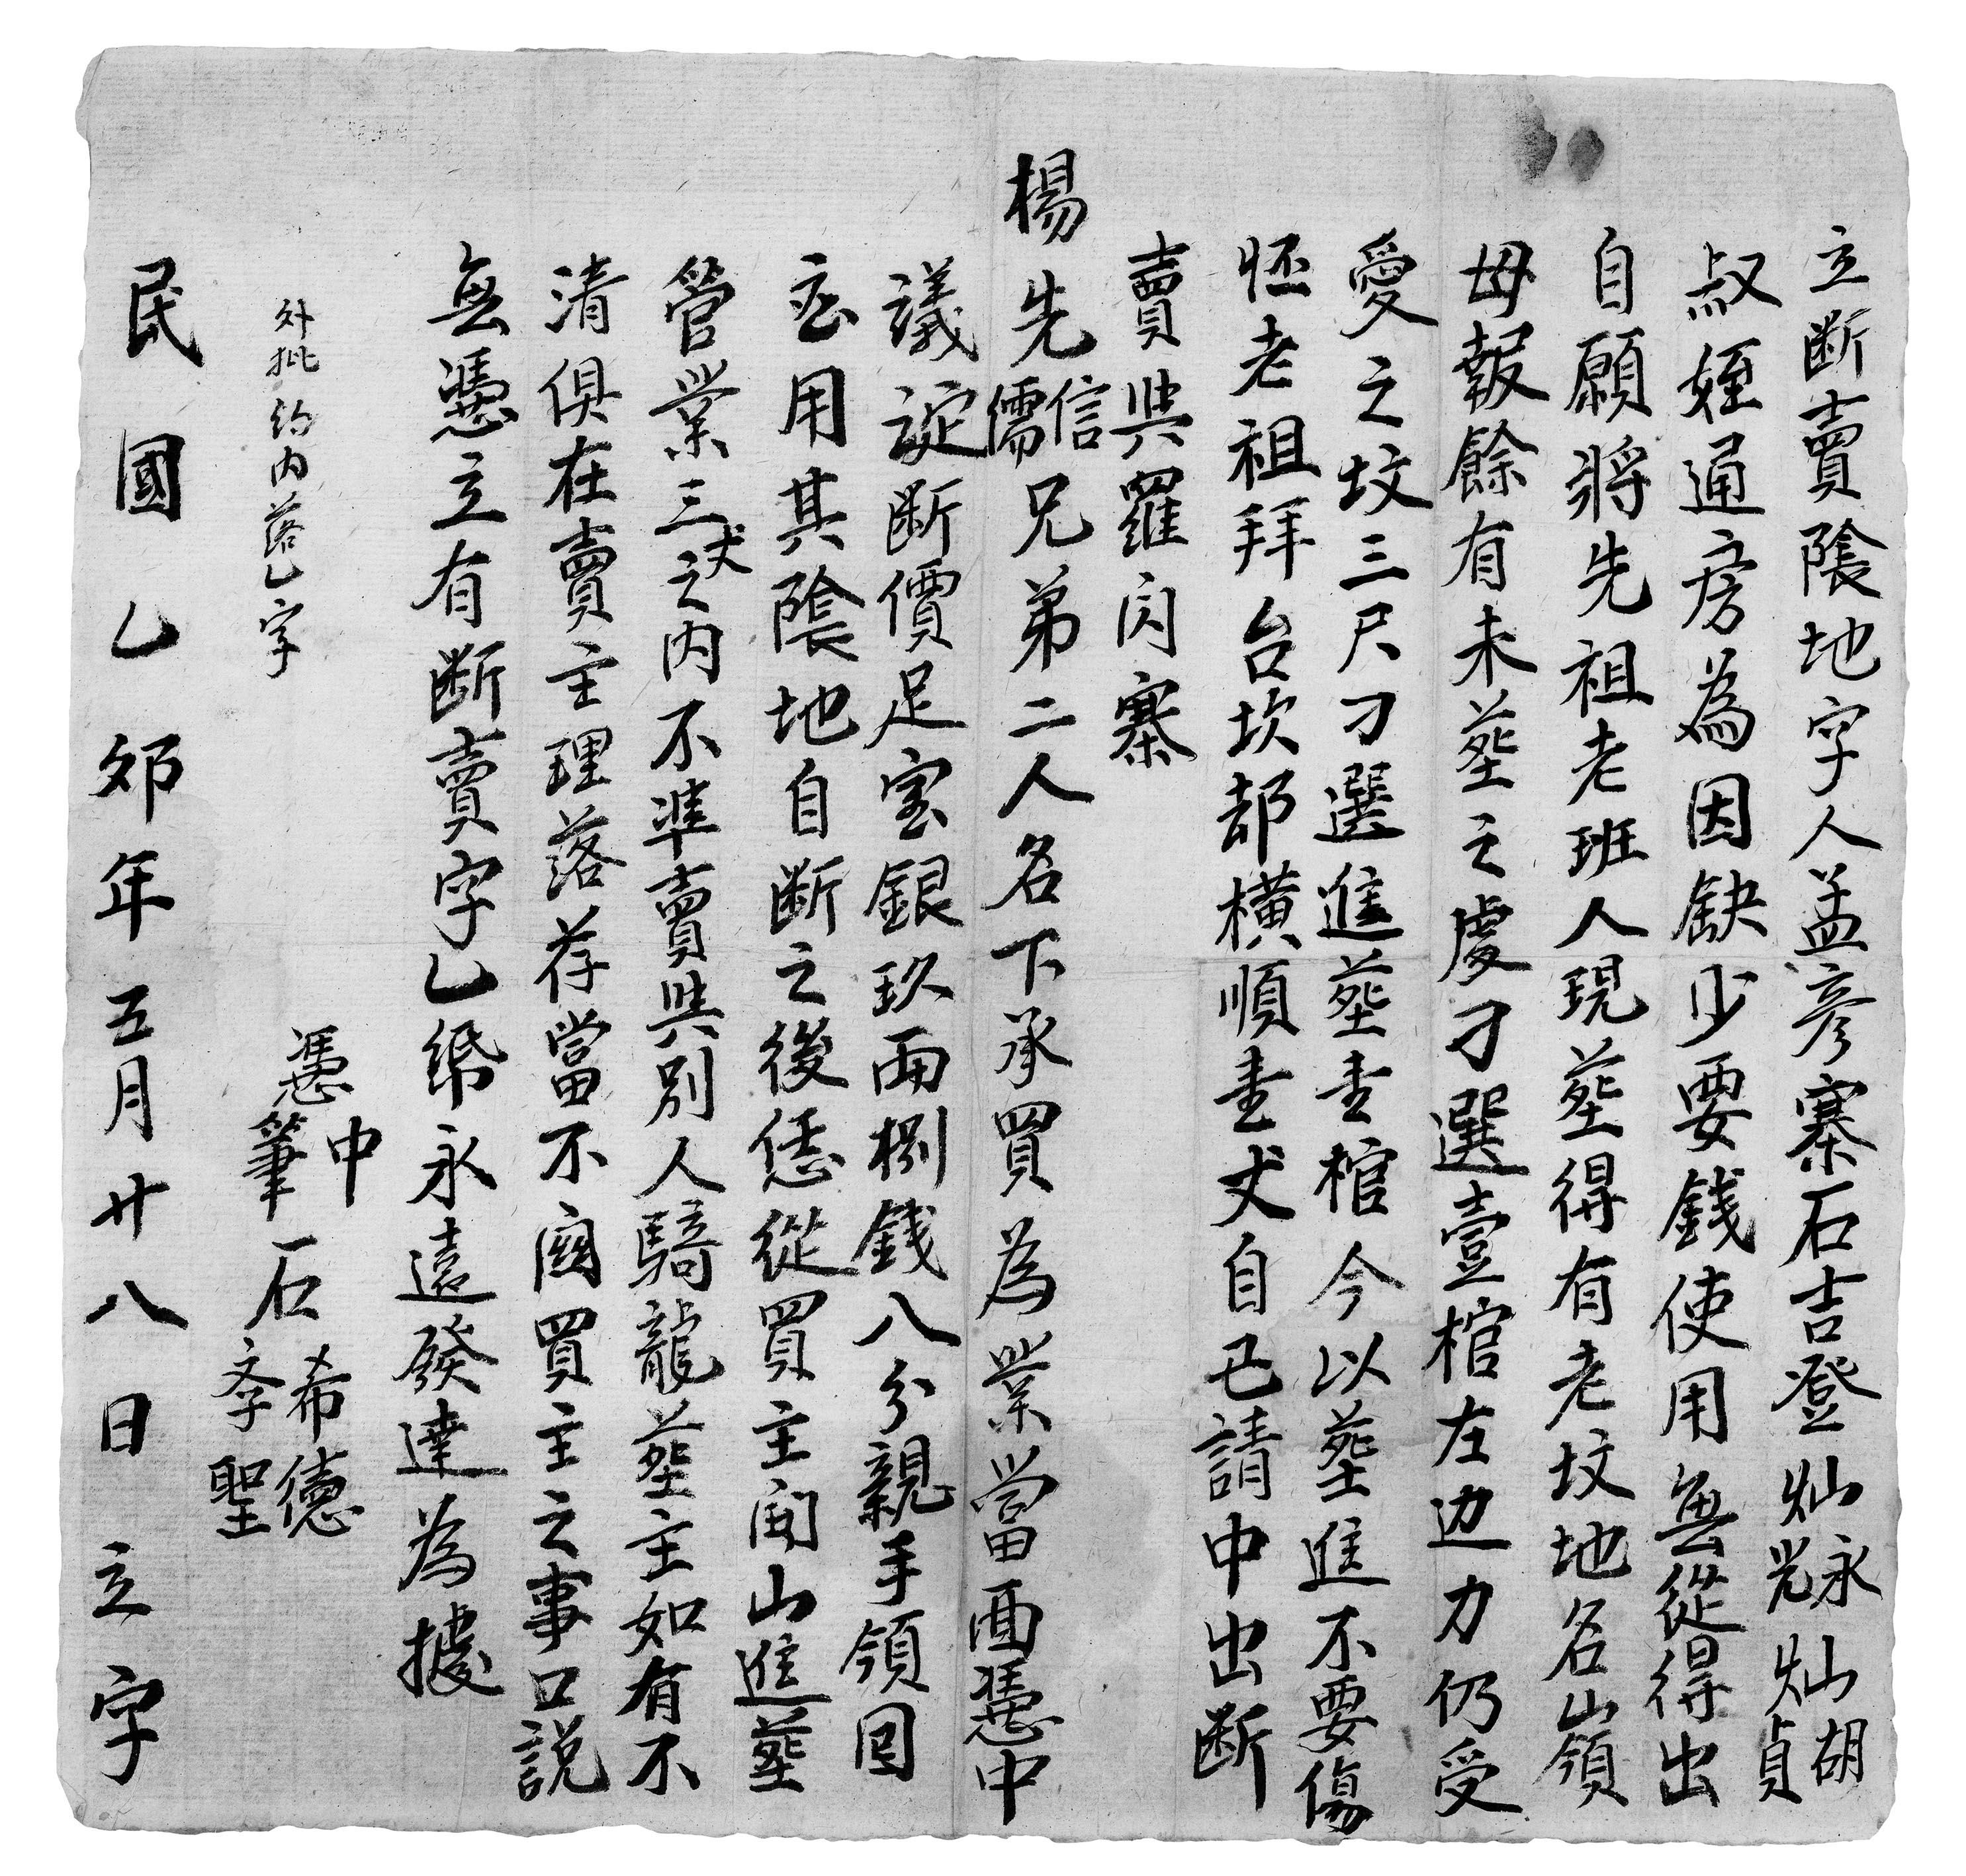 立断賣隂地字人孟彦寨石吉登灿永光灿胡貞
叔姪通房為因缺少要錢使用無從得出
自願將先祖老班人現塟得有老坟地名岀嶺
母報餘有未塟之處刁選壹棺左边力仍受
愛之坟三尺刁選進塟壹棺今以塟進不要傷
怌老祖拜台坎却横順壹丈自己請中出断
賣與羅闪寨
楊先信儒兄弟二人名下承買為業當面憑中
議定断價足宝銀玖両捌錢八分親手領囬
应用其隂地自断之後恁從買主開山進塟
管業三丈之内不準賣與别人騎龍塟主如有不
清俱在賣主理落存當不関買主之事口説
無憑立有断賣字乙紙永遠發達為據
外批約内落乙字
憑中筆石希德孝聖
民國乙夘年五月廿八日立字